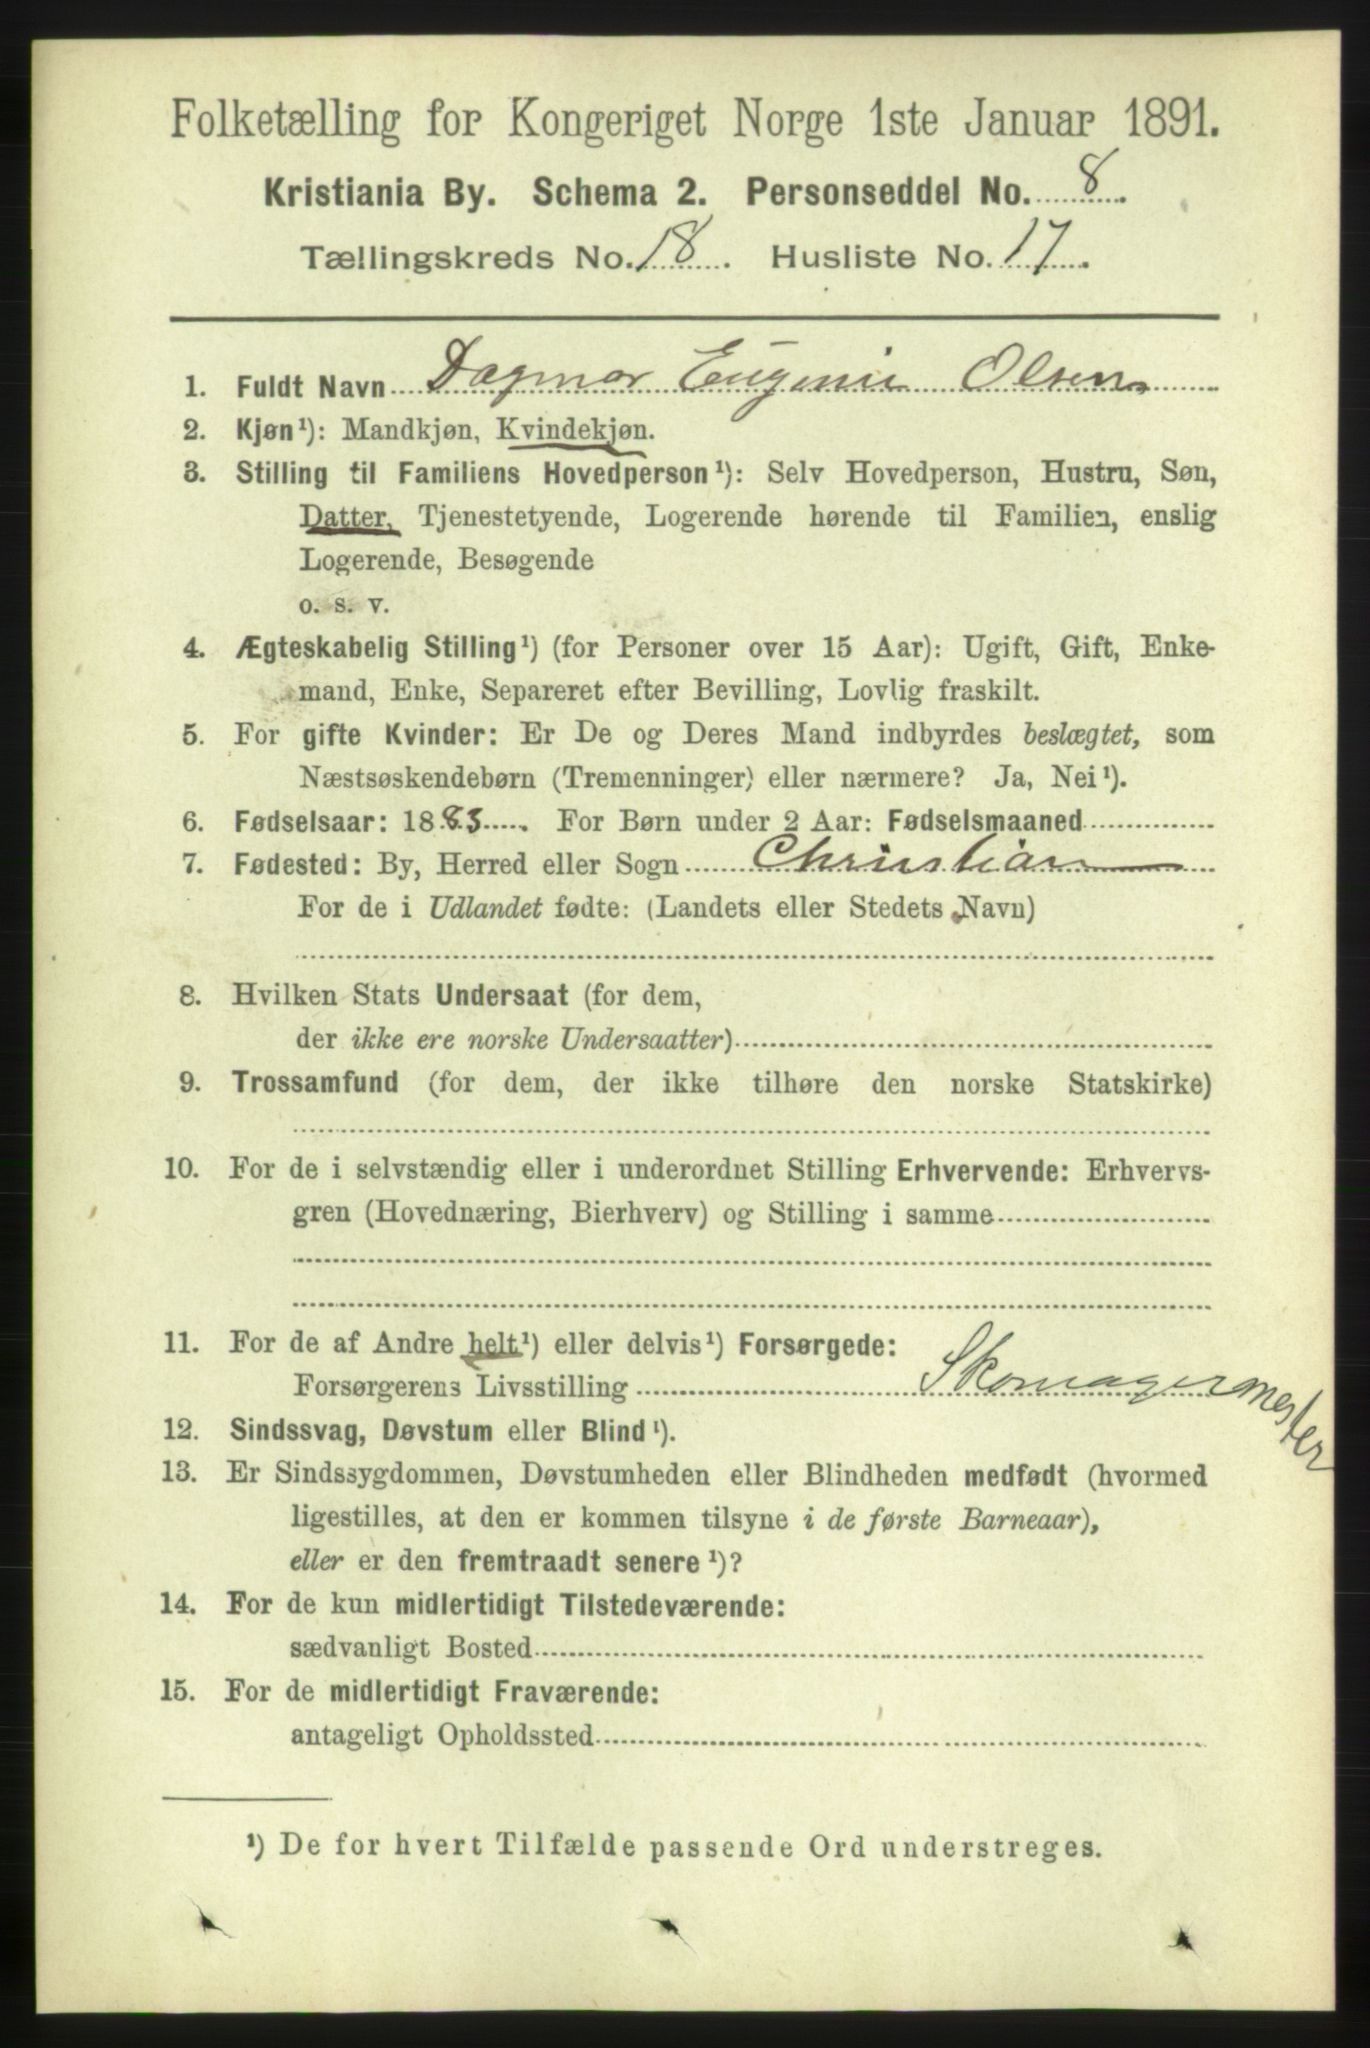 Folketælling for Kongeriget Norge 1ste Januar 1891.
Kristiania By. Schema 2. Personseddel No. 8.
Tællingskreds No. 18. Husliste No. 17.
1. Fuldt Navn Dagmar Eugenie Olsen
2. Kjøn¹): Mandkjøn, Kvindekjøn.
3. Stilling til Familiens Hovedperson¹): Selv Hovedperson, Hustru, Søn,
Datter, Tjenestetyende, Logerende hørende til Familien, enslig
Logerende, Besøgende
o. s. v.
4. Ægteskabelig Stilling¹) (for Personer over 15 Aar): Ugift, Gift, Enke-
mand, Enke, Separeret efter Bevilling, Lovlig fraskilt.
5. For gifte Kvinder: Er De og Deres Mand indbyrdes beslægtet, som
Næstsøskendebørn (Tremenninger) eller nærmere? Ja, Nei¹).
6. Fødselsaar: 1883. For Børn under 2 Aar: Fødselsmaaned
7. Fødested: By, Herred eller Sogn Christian
For de i Udlandet fødte: (Landets eller Stedets Navn)
8. Hvilken Stats Undersaat (for dem,
der ikke ere norske Undersaatter)
9. Trossamfund (for dem, der ikke tilhøre den norske Statskirke)
10. For de i selvstændig eller i underordnet Stilling Erhvervende: Erhvervs-
gren (Hovednæring, Bierhverv) og Stilling i samme
11. For de af Andre helt¹) eller delvis¹) Forsørgede:
Forsørgerens Livsstilling Skomagermester
12. Sindssvag, Døvstum eller Blind¹).
13. Er Sindssygdommen, Døvstumheden eller Blindheden medfødt (hvormed
ligestilles, at den er kommen tilsyne i de første Barneaar),
eller er den fremtraadt senere¹)?
14. For de kun midlertidigt Tilstedeværende:
sædvanligt Bosted
15. For de midlertidigt Fraværende:
antageligt Opholdssted
¹) De for hvert Tilfælde passende Ord understreges.